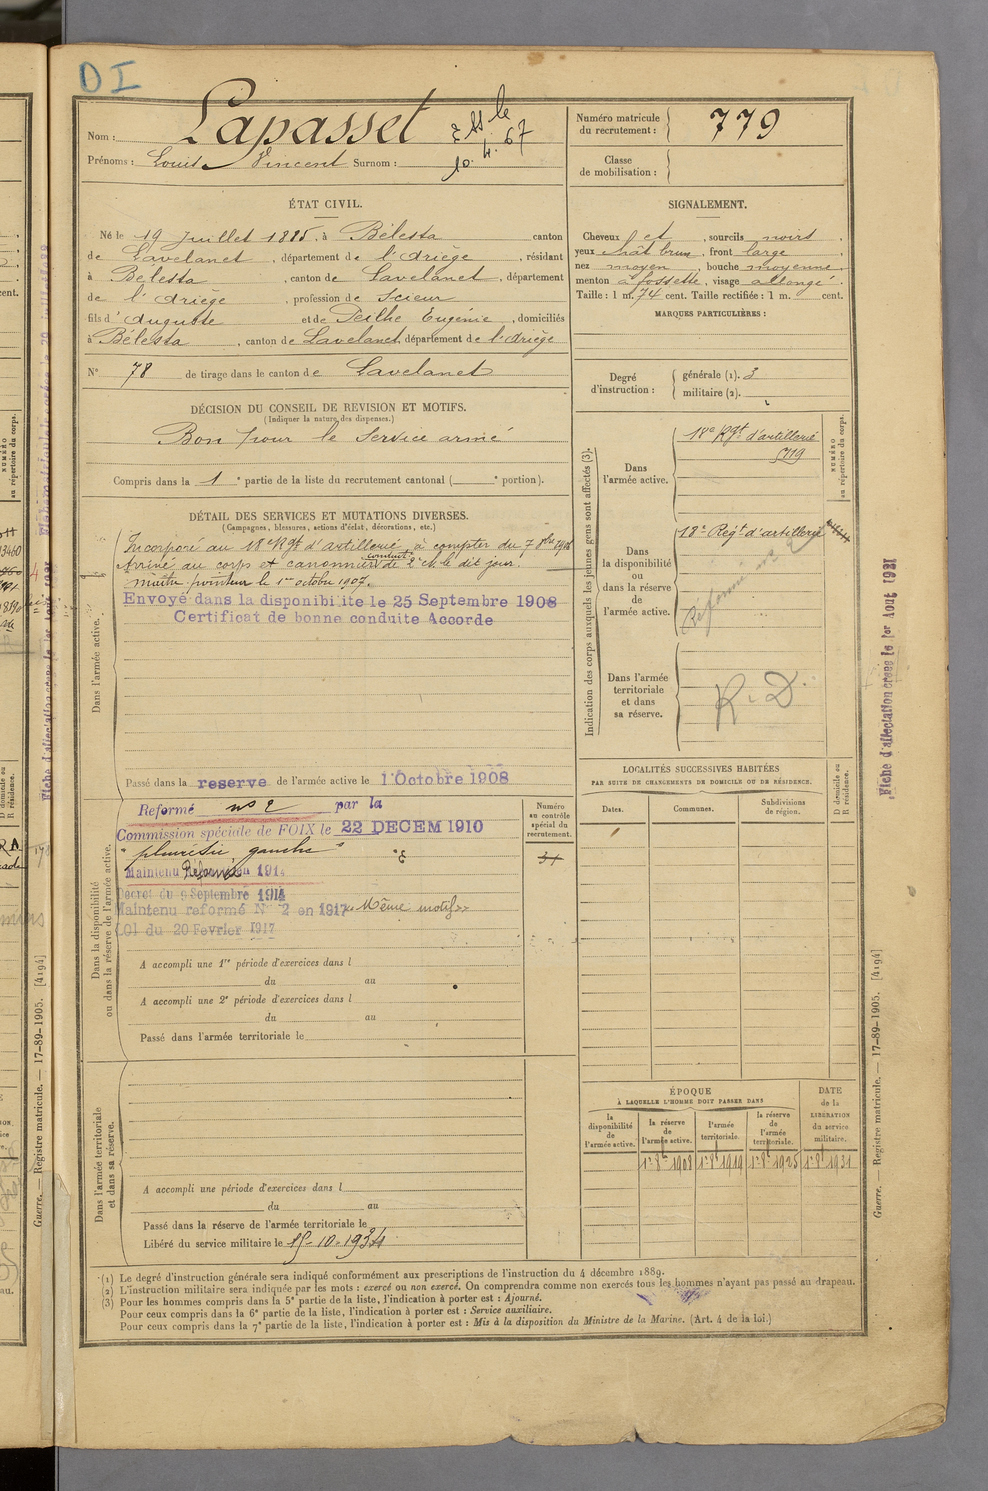 DI
Nom : Lapasset
Prénoms : Louis Vincent Surnom :
10. 4. 67
Numéro matricule du recrutement : 779
Classe de mobilisation :
ÉTAT CIVIL.
Né le 19 Juillet 1885, à Bélesta canton
de Lavelanet, département de l'Ariège, résidant
à Bélesta, canton de Lavelanet, département
de l'Ariège, profession de Scieur
fils d'Auguste et de Peilhe Eugénie, domiciliés
à Bélesta, canton de Lavelanet, département de l'Ariège
N° 78 de tirage dans le canton de Lavelanet
SIGNALEMENT.
Cheveux et, sourcils noirs
yeux chât brun, front large
nez moyen, bouche moyenne
menton à fossette, visage allongé.
Taille : 1 m. 74 cent. Taille rectifiée : 1 m. cent.
MARQUES PARTICULIÈRES :
Degré d'instruction :
générale (1). 3
militaire (2).
DÉCISION DU CONSEIL DE REVISION ET MOTIFS.
(Indiquer la nature des dispenses.)
Bon pour le Service armé
Compris dans la 1e partie de la liste du recrutement cantonal ( e portion).
DÉTAIL DES SERVICES ET MUTATIONS DIVERSES.
(Campagnes, blessures, actions d'éclat, décorations, etc.)
Dans l'armée active.
Incorporé au 18e Rgt d'artillerie à compter du 7 8bre 1906
Arrivé au corps et canonnier conduct. de 2e cl. le dit jour.
maître pointeur le 1er octobre 1907.
Envoyé dans la disponibilite le 25 Septembre 1908
Certificat de bonne conduite Accorde
Passé dans la reserve de l'armée active le 1 Octobre 1908
Dans la disponibilité ou dans la réserve de l'armée active.
Reformé no 2 par la
Commission spéciale de FOIX le 22 DECEM 1910
"pleurésie gauche"
Maintenu Réformé en 1914
Decret du 9 Septembre 1914
Maintenu reformé N° 2 en 1917 «Même motif»
LOI du 20 Fevrier 1917
A accompli une 1re période d'exercices dans l
du au
A accompli une 2e période d'exercices dans l
du au
Passé dans l'armée territoriale le
Numéro au contrôle spécial du recrutement.
Dans l'armée territoriale et dans sa réserve.
A accompli une période d'exercices dans l
du au
Passé dans la réserve de l'armée territoriale le
Libéré du service militaire le 15-10-1934
Indication des corps auxquels les jeunes gens sont affectés (3).
NUMÉRO au répertoire du corps.
Dans l'armée active.
18e Rgt d'artillerie
Dans la disponibilité ou dans la réserve de l'armée active.
18e Régt d'artillerie
Réformé no 2
Dans l'armée territoriale et dans sa réserve.
R. D.
LOCALITÉS SUCCESSIVES HABITÉES
PAR SUITE DE CHANGEMENTS DE DOMICILE OU DE RÉSIDENCE.
Dates. Communes. Subdivisions de région. D domicile ou R résidence.
ÉPOQUE
À LAQUELLE L'HOMME DOIT PASSER DANS
la disponibilité de l'armée active.
la réserve de l'armée active.
l'armée territoriale.
la réserve de l'armée territoriale.
DATE de la LIBÉRATION du service militaire.
1er 8bre 1908 1er 8bre 1919 1er 8bre 1925 1er 8bre 1931
(1) Le degré d'instruction générale sera indiqué conformément aux prescriptions de l'instruction du 4 décembre 1889.
(2) L'instruction militaire sera indiquée par les mots : exercé ou non exercé. On comprendra comme non exercés tous les hommes n'ayant pas passé au drapeau.
(3) Pour les hommes compris dans la 5e partie de la liste, l'indication à porter est : Ajourné.
Pour ceux compris dans la 6e partie de la liste, l'indication à porter est : Service auxiliaire.
Pour ceux compris dans la 7e partie de la liste, l'indication à porter est : Mis à la disposition du Ministre de la Marine. (Art. 4 de la loi.)
Fiche d'affectation créée le 1er Aout 1921
Guerre. — Registre matricule. — 17-89-1905. [4194]
Guerre. — Registre matricule. — 17-89-1905. [4194]